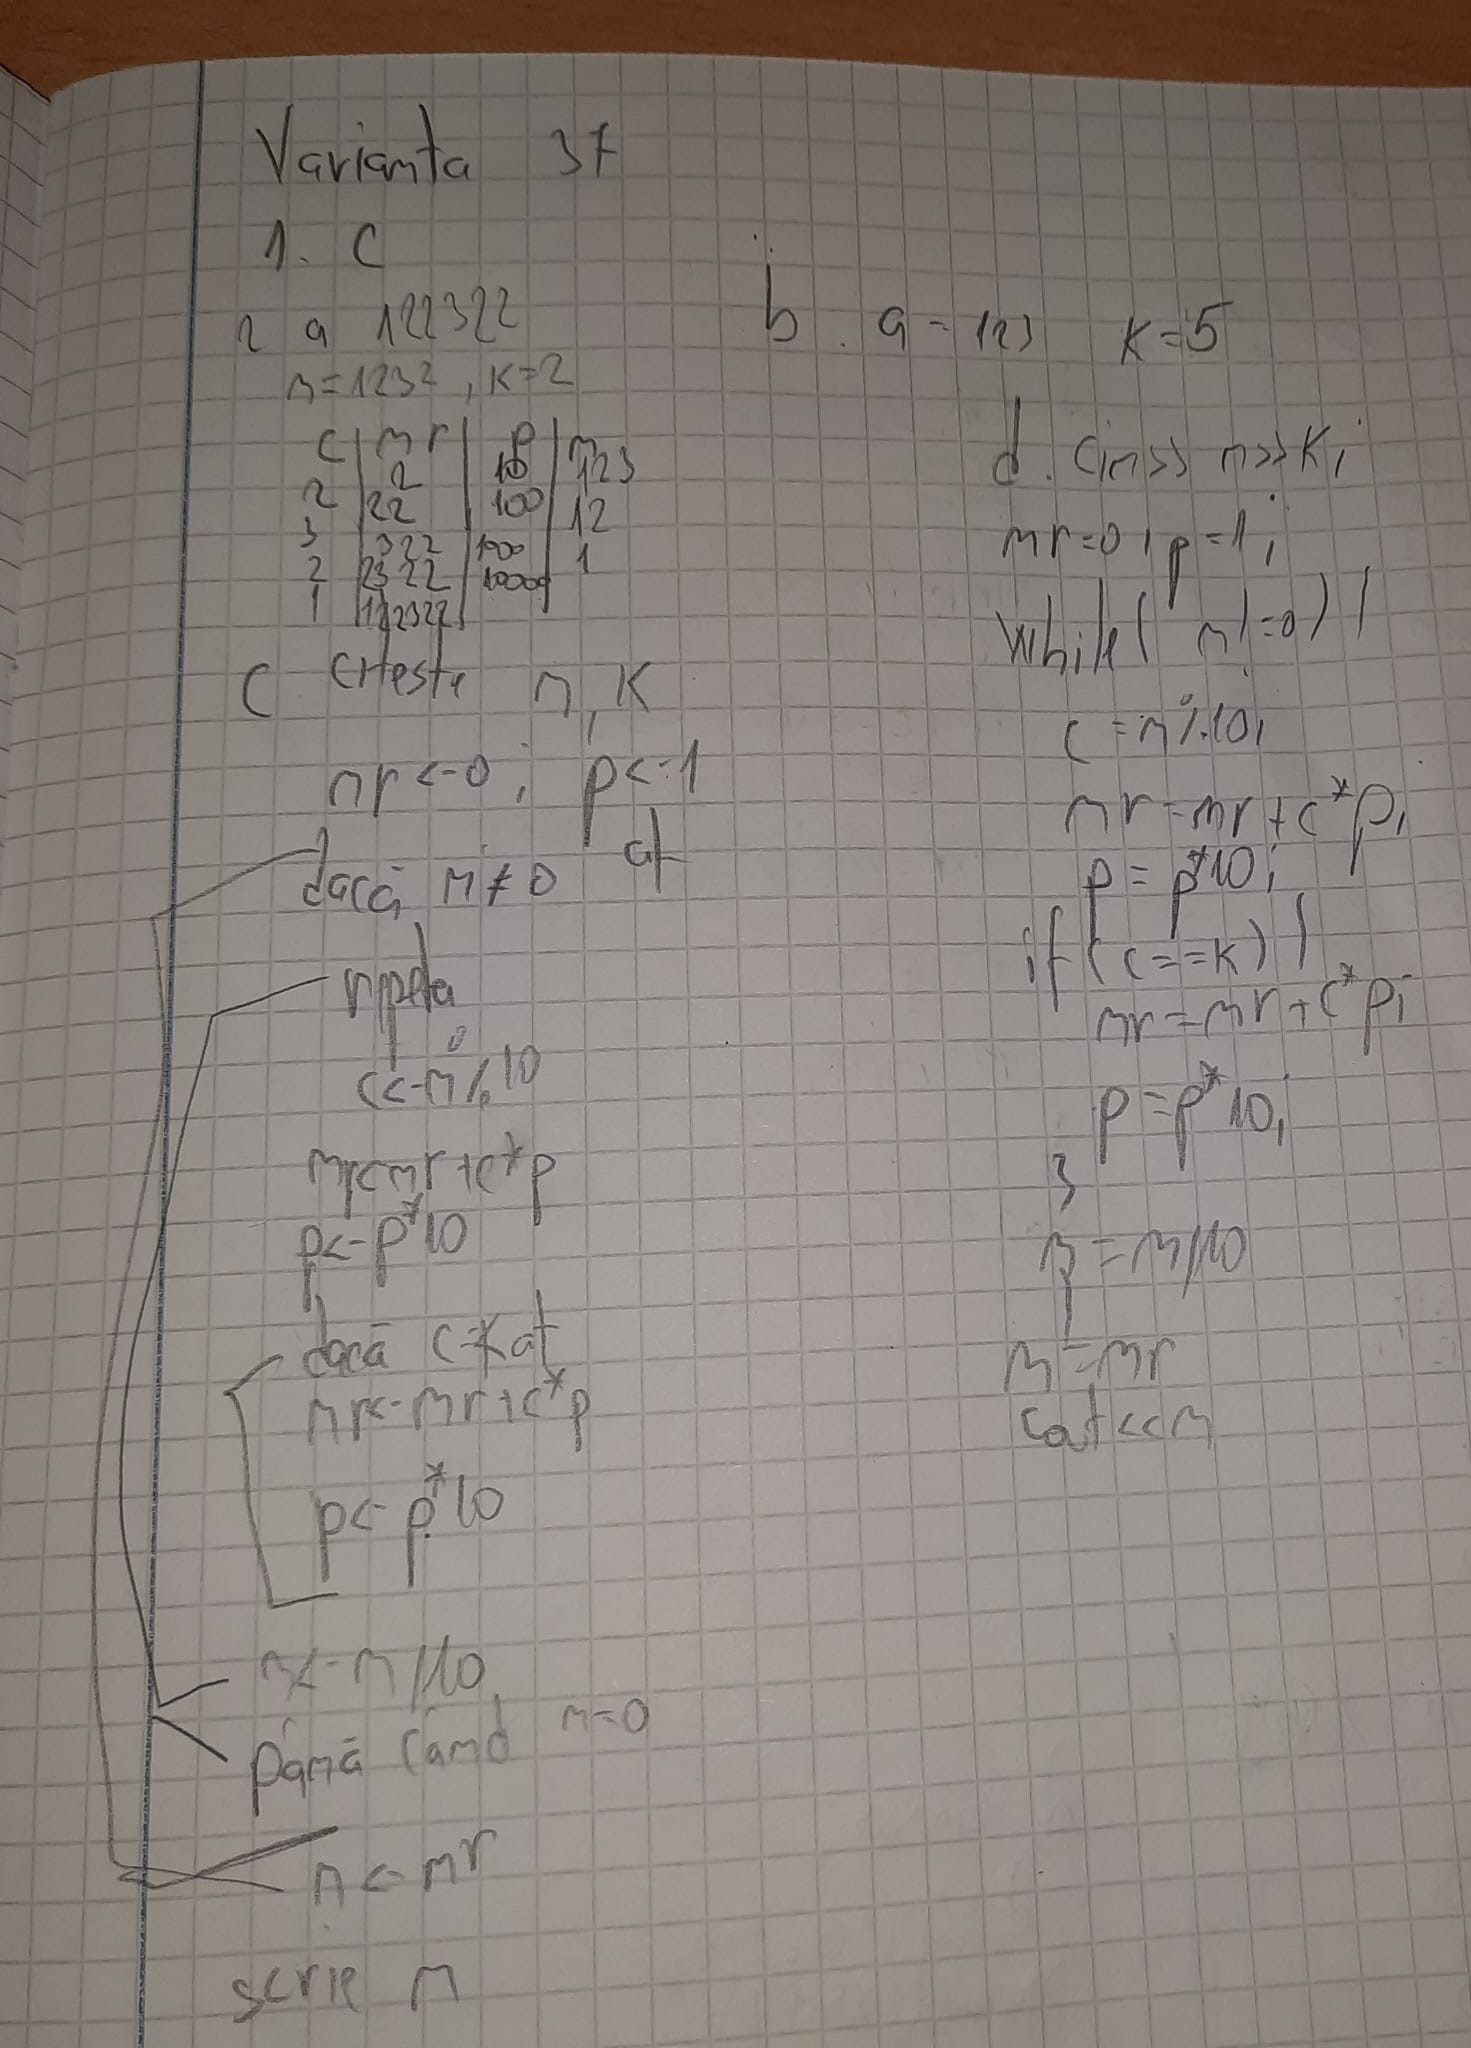 Varianta 37
1. C
2 a 122322
n=1232, K=2
c | nr | p | n
2 | 2 | 10 | 123
2 | 22 | 100 | 12
3 | 322 | 1000 | 1
2 | 2322 | 10000
1 | 122322
C citeste n, K
nr<-0; p<-1
dacă n≠0 at
repeta
c<-n%10
nr<-nr+c*p
p<-p*10
dacă c=K at
nr<-nr+c*p
p<-p*10
n<-n/10
până când n=0
n<-nr
scrie n
b. a=123 K=5
d. cin>>n>>K;
nr=0, p=1;
while(n!=0){
c=n%10;
nr=nr+c*p;
p=p*10;
if(c==K){
nr=nr+c*p;
p=p*10;
}
n=n/10
}
n=nr
cout<<n